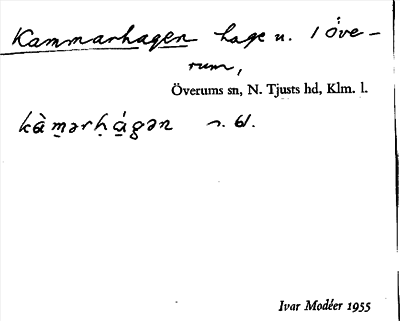 Kammarhagen hage u. 1 Över-
rum,
Överums sn, N. Tjusts hd, Klm. l.
kàmərhágən
Ivar Modéer 1955